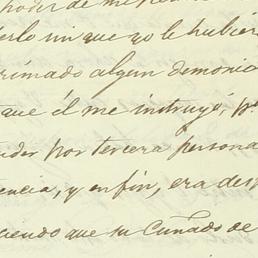 poder de me
erlo sin que yo le hubier
rimado algun demonio
que él me instruyó, p
nder por tercera persona
tencia, y en fin, era des
ciendo que su Cuñado de